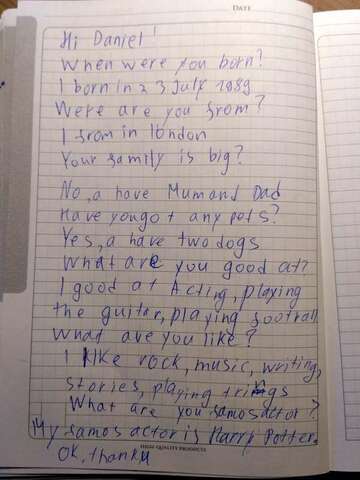 DATE
Hi Daniel!
When were you born?
I born in 23 July 1989
Were are you from?
I from in london
Your family is big?
No, a have Mum and Dad
Have you got any pets?
Yes, a have two dogs
What are you good at?
I good at Acting, playing
the guitar, playing football
What are you like?
I like rock, music, writing,
stories, playing trings
What are you samos actor?
My samos actor is Harry Potter.
OK, thanku
HIGH QUALITY PRODUCTS